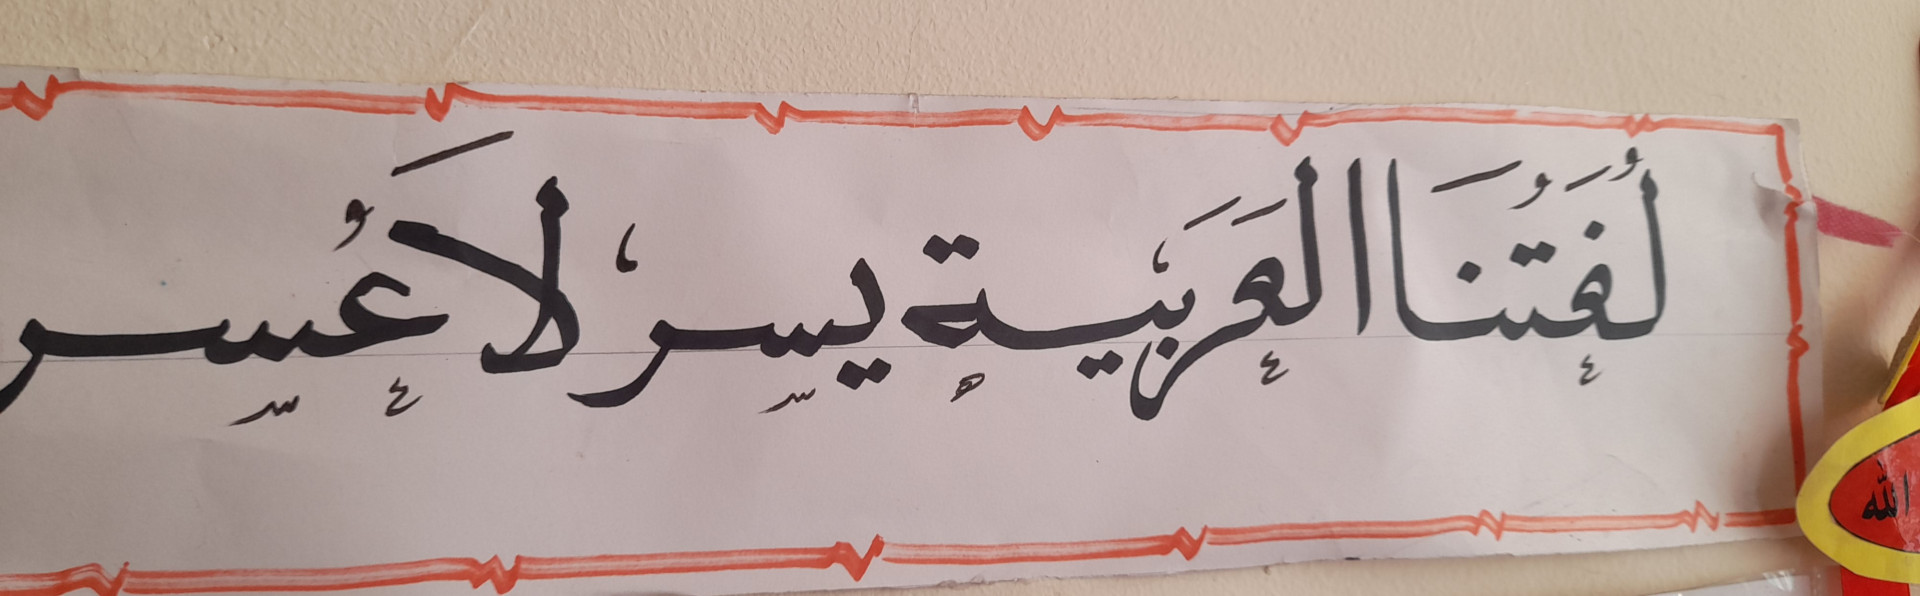 لُغَتُنَا العَرَبية يسر لَا عُسر
الله